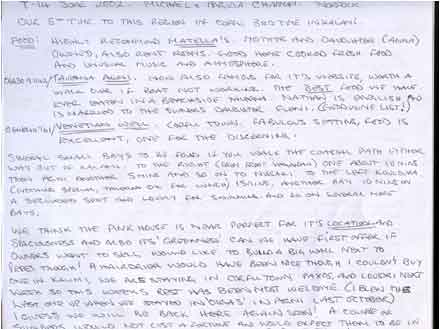 7-14 JUNE 2002. MICHAEL & CHAPMAN. NORFOLK
OUR 5TH TIME TO THIS REGION IN CORFU, 3RD TIME IN KALAMI.
FOOD: HIGHLY RECOMMEND MATELLA'S. MOTHER AND DAUGHTER (ANNA)
OWNED, ALSO RENT ROOMS. GOOD HOME COOKED FRESH FOOD
AND UNUSUAL MUSIC AND ATMOSPHERE.
TAVERNA AGNI. NOW ALSO FAMOUS FOR IT'S WEBSITE, WORTH A
WALK OVER IF BOAT NOT WORKING. THE BEST FOOD WE HAVE
EVER EATEN IN A BEACHSIDE TAVERNA. NATHAN IS ENGLISH AND
IS MARRIED TO THE OWNERS DAUGHTER ELENI. (FABULOUS WINE LIST!)
VENETIAN WELL. CORFU TOWN. FABULOUS SETTING, FOOD IS
EXCELLENT, ONE FOR THE DISCERNING.
SEVERAL SMALL BAYS TO BE FOUND IF YOU WALK THE COASTAL PATH EITHER
WAY OUT OF KALAMI. TO THE RIGHT ONE ABOUT 10 MINS
THEN AGNI ANOTHER 5 MINS AND SO ON TO NISSAKI. TO THE LEFT KOULOURA
(NOTHING SPECIAL, TAVERNA OK FOR LUNCH) 15 MINS, ANOTHER BAY 10 MINS ON
A SECLUDED SPOT AND LOVELY FOR SWIMMING AND SO ON SEVERAL MORE
BAYS.
WE THINK THE PINK HOUSE IS NEAR PERFECT FOR IT'S LOCATION AND
SPACIOUSNESS AND ALSO ITS 'GREEKNESS'. CAN WE HAVE FIRST OFFER IF
OWNERS WANT TO SELL, WOULD LIKE TO BUILD A BIG WALL NEXT TO
THOUGH! A HAIRDRYER WOULD HAVE BEEN NICE THOUGH I COULDN'T BUY
ONE IN KALAMI, WE ARE STAYING IN CORFU TOWN, PAXOS, AND LOUTSES NEXT
WEEK SO THIS WEEK'S REST HAS BEEN MOST WELCOME. (I BLEW THE
LAST ONE UP WHEN WE STAYED IN IN AGNI LAST OCTOBER)
I GUESS WE WILL BE BACK HERE AGAIN SOON! A COUPLE OF
WOULD NOT COST A FORTUNE AND WOULD EXPECT THEM TO BE IN